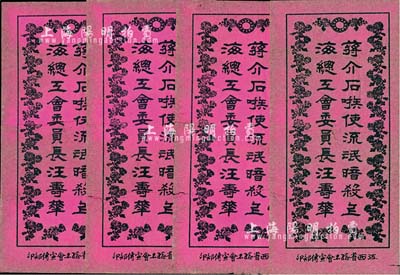 蔣介石嗾使流氓暗殺上
海總工會委員長汪壽華
蔣介石嗾使流氓暗殺上
海總工會委員長汪壽華
蔣介石嗾使流氓暗殺上
海總工會委員長汪壽華
蔣介石嗾使流氓暗殺上
海總工會委員長汪壽華
江西省總工會宣傳部印
上海陽明拍賣
上海陽明拍賣